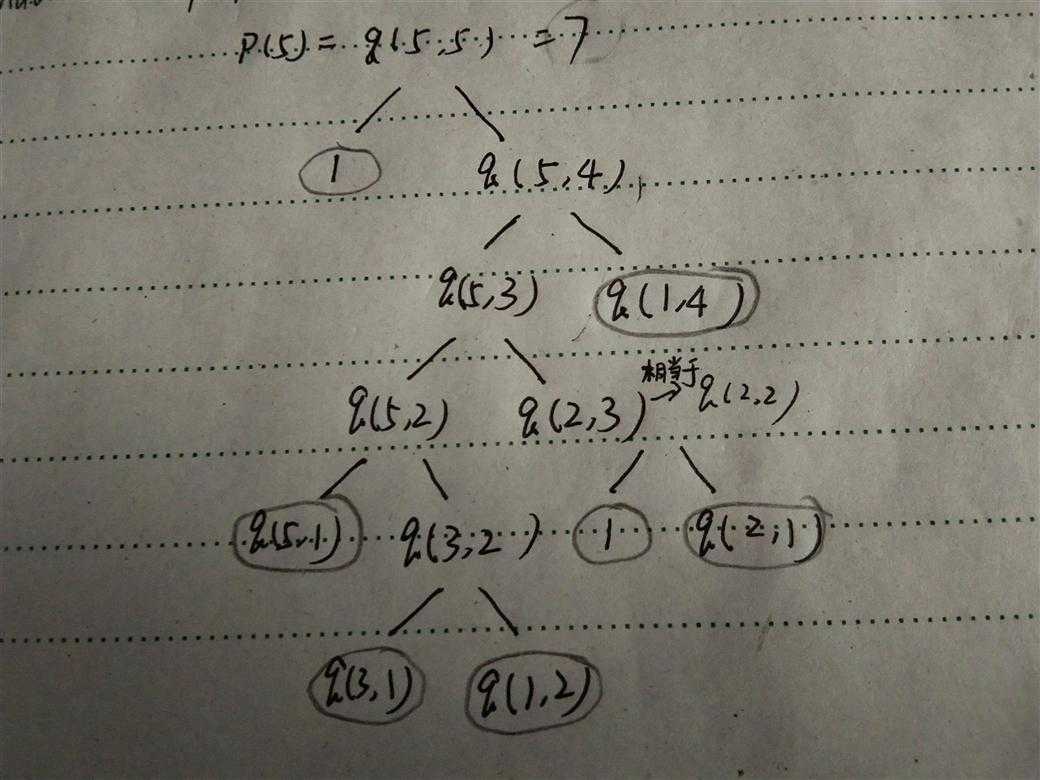 P(5) = q(5,5) = 7
1 q(5,4)
q(5,3) q(1,4)
q(5,2) q(2,3) 相当于→ q(2,2)
q(5,1) q(3,2) 1 q(2,1)
q(3,1) q(1,2)